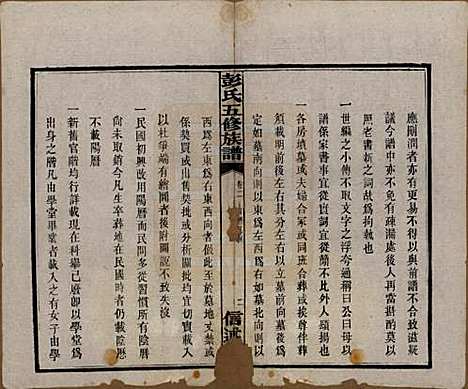 應刪潤者亦有更訂者不得以與前譜不合致滋疑
議今譜中亦不免有疎漏處後人續修酌莫以
照老書新之詞故爲拘執也
一世編之小傳不取文字之浮夸通稱曰公曰母以
譜係家書事宜從實詞宜從簡不比外人顯揚也
一各房墳墓或夫婦合家或兄弟同班合葬或挨葬
須載明前後左右其分左右以立墓前向墓後爲
定如墓南向則以東爲左西爲右如墓北向則以
彭氏五修族譜
卷二
二
信述堂
西爲左東爲右東西向者倣此至於墓地或丈量
係契買或出售契批或分析合同批均宜切實載
以杜爭端有繪圖者後附圖說不致失沒
一民國初興改用陽曆而民間多從習慣所有印板
未有取銷今凡生卒葬地在民國時者仍載陰曆
不載陽曆
一新舊官階均行詳載現在科舉已廢卽以學堂爲
出身之階凡由學堂畢業者載入之有女子由學